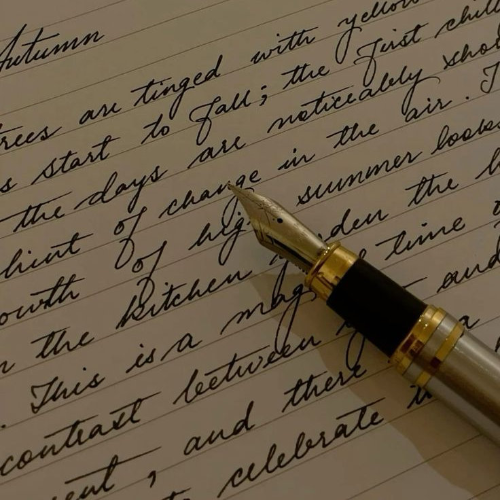 Autumn
trees are tinged with yellow
start to fall; the first chill
the days are noticeably
hint of change in the air.
of high summer looks
the kitchen the
This is a time
contrast between and
, and there
celebrate